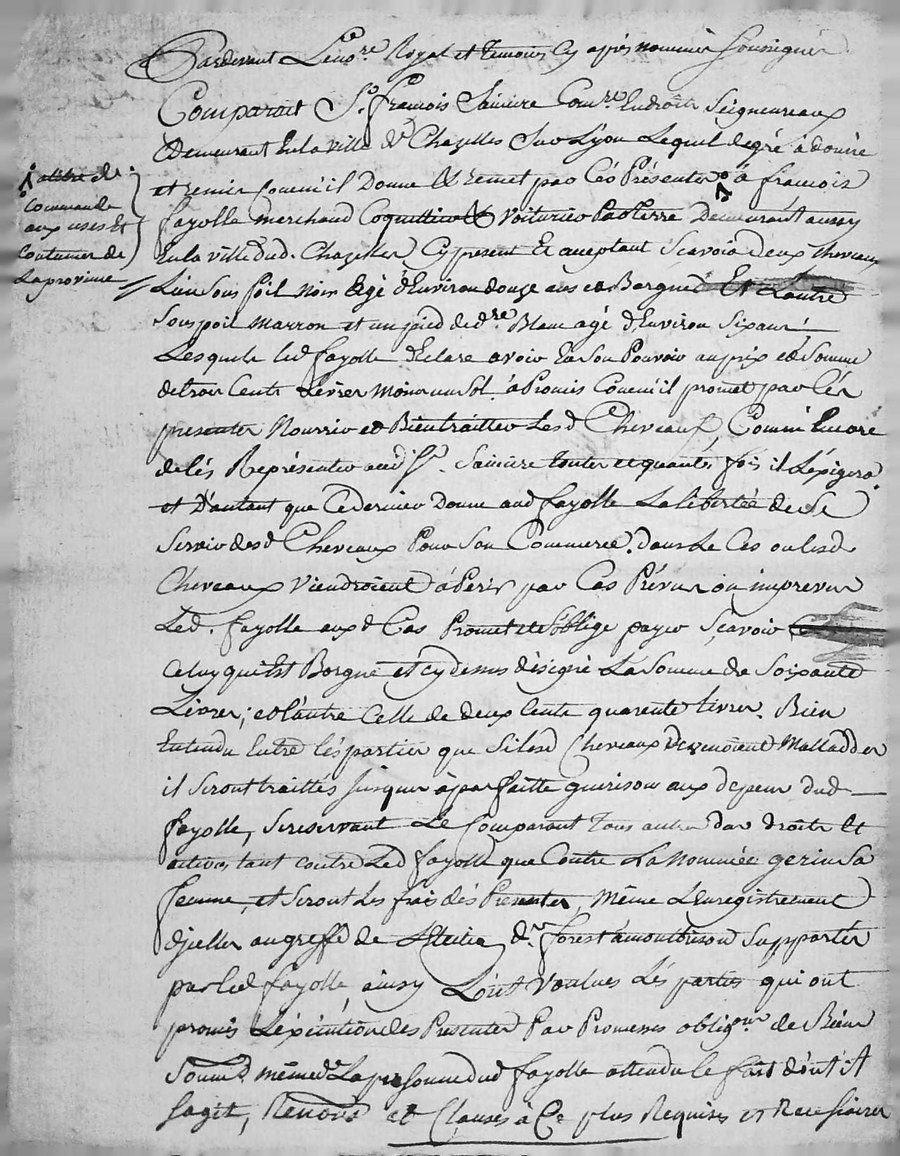 Pardevant Le no.re Royal et Temoins Cy après nommés soussignés
Comparoit S.r françois Sainière Com.re En droits Seigneureaux
Demeurant En la ville de Chazelles Sur Lÿon Lequel de gré à donné
et remis comm'il Donne et remet par Cés Présentes à françois
à titre de
commande
aux uses Et
Coutumes de
La province
fayolle merchand Coquettier et Voiturier Demeurant aussy
En la ville dud. Chazelles Cy present Et aceptant Sçavoir deux chevaux
L'un Sous poil noir Agé d'Environ douze ans et Borgne Et L'autre
Sous poil marron et un pied de d.re Blanc agé d'Environ Six ans
Lesquels led. fayolle déclare avoir En Son Pouvoir au prix et Somme
de trois Cents Livres moins un Sol à Promis Comm'il promet par Cés
presentes Nourrir et Bien traitter Lesd. Cheveaux, Comm'Encore
de lés Représenter aud. S.r Sainière toutes et quantes fois il L'éxigera
et D'autant que Ce dernier Donne aud. fayolle La libertée de Se
Servir desd. Cheveaux Pour Son Commerce, dans Le Cas ou lesd.
Cheveaux Viendroient à Périr par Cas Prévus ou imprevus
Led. fayolle aux d. Cas Promet et S'oblige payer Sçavoir
Celuy qui Est Borgne et cy dessus désigné La Somme de Soixante
Livres; et L'autre Celle de deux Cents quarente Livres. Bien
Entendu Entre lés parties que Si lesd. Cheveaux devenoient Malladdes
il Seront traittés Jusques à parfaitte guérison aux depens dud.
fayolle, Se reservant Le Comparant Tous autres droits Et
actions tant contre Led. fayolle que Contre La Nommée gerin Sa
femme, et Seront Les frais dés Presentes, Même L'Enregistrement
d'jcelles au greffe de forest à montbrison Supportés
par led. fayolle, ainsy L'ont Voulues Lés parties qui ont
promis L'éxécution des Presentes Par Promesses oblig.ons de Biens
Soum.s même de La personne dud. fayolle attendu le fait dont il
S'agit, Renonc.s et Clauses à Ce plus Requises et Necessaires